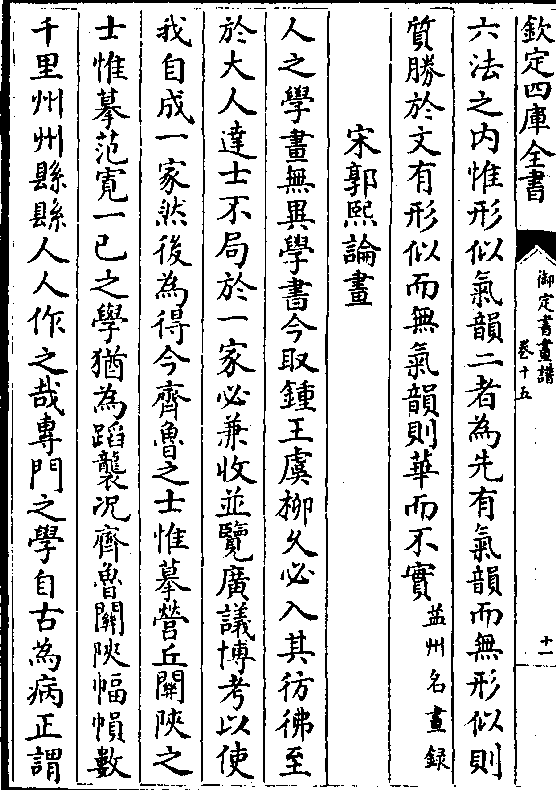 欽定四庫全書
御定書畫譜
卷十五
十一
六法之内惟形似氣韻二者為先有氣韻而無形似則
質勝於文有形似而無氣韻則華而不實益州名畫録
宋郭熙論畫
人之學畫無異學書今取鍾王虞柳久必入其彷彿至
於大人達士不局於一家必兼收並覽廣議博考以使
我自成一家然後為得今齊魯之士惟摹營丘關陜之
士惟摹范寛一己之學猶為蹈襲况齊魯關陜幅幀數
千里州州縣縣人人作之哉専門之學自古為病正謂